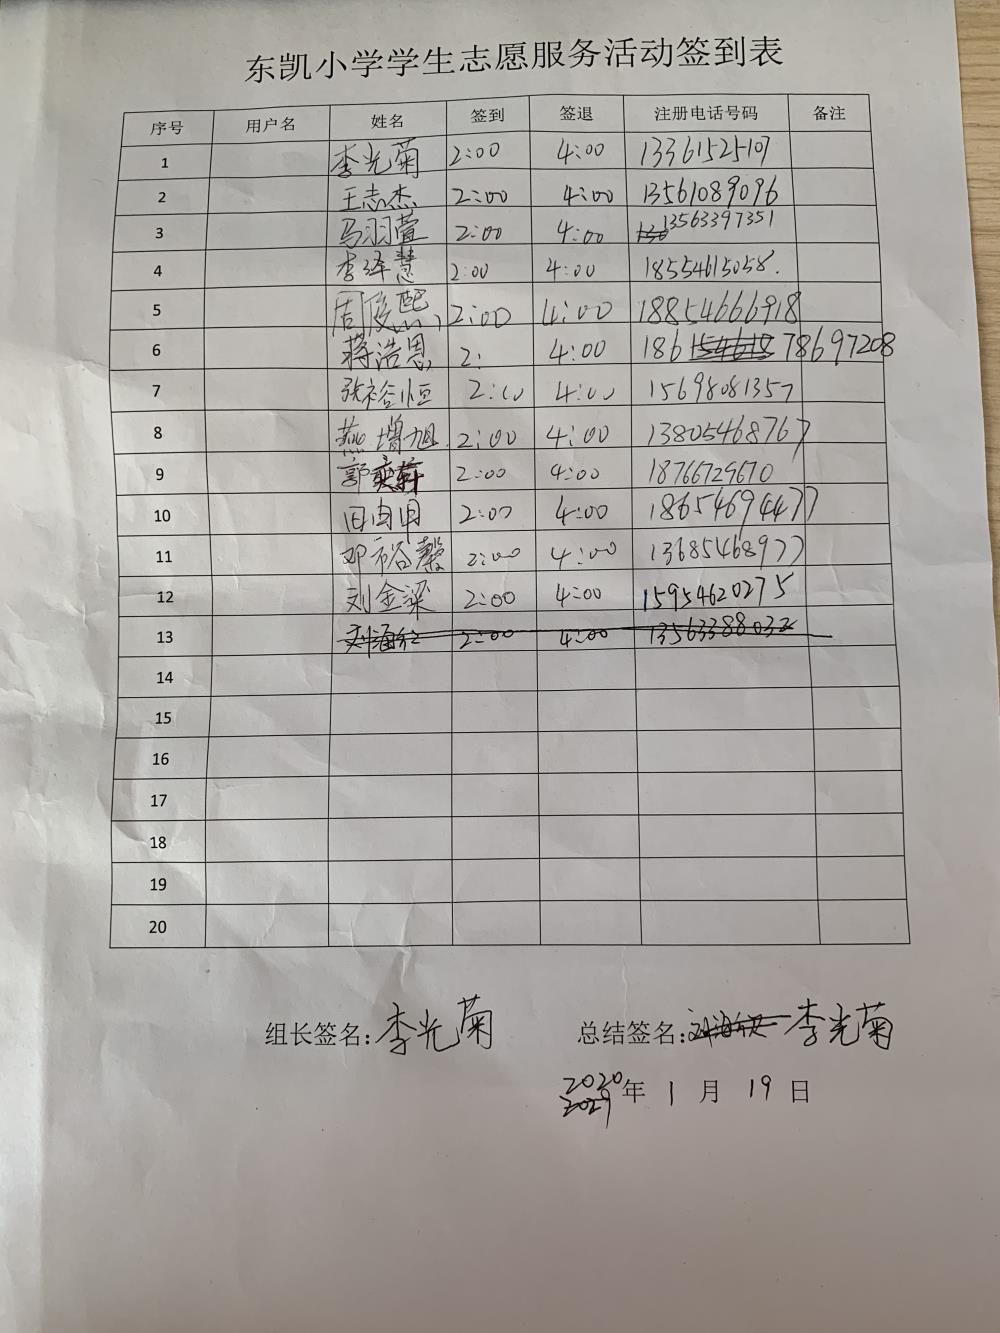 东凯小学学生志愿服务活动签到表
序号 用户名 姓名 签到 签退 注册电话号码 备注
1 李光菊 2:00 4:00 13361525107
2 王志杰 2:00 4:00 13561089096
3 马羽萱 2:00 4:00 13563397351
4 李泽慧 2:00 4:00 18554615058.
5 2:00 4:00 18854666918
6 蒋浩恩 2: 4:00 186 78697208
7 张裕恒 2:00 4:00 15698081357
8 燕增旭 2:00 4:00 13805468767
9 郭奕轩 2:00 4:00 18766729670
10 2:00 4:00 18654694477
11 邓裕馨 2:00 4:00 13685468977
12 刘金梁 2:00 4:00 15954620275
13 2:00 4:00 13563388032
14
15
16
17
18
19
20
组长签名:李光菊 总结签名: 李光菊
2020年 1 月 19 日